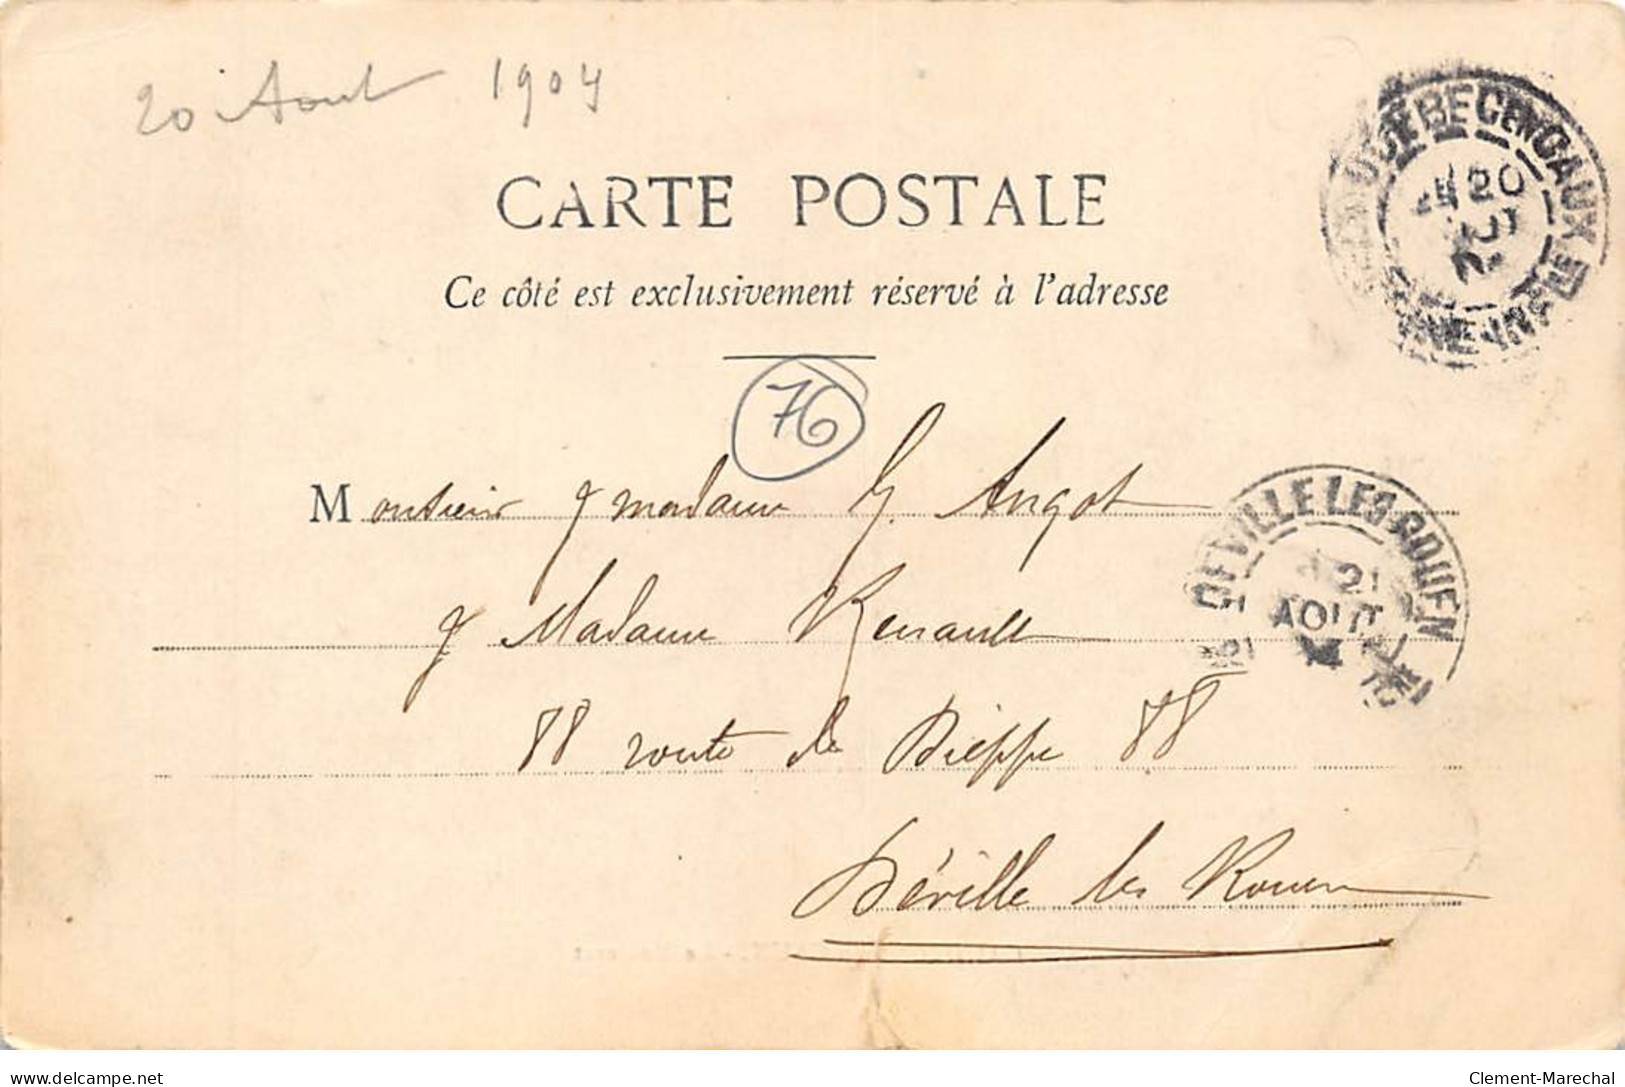 20 Aout 1904
CARTE POSTALE
Ce côté est exclusivement réservé à l'adresse
76
Monsieur & madame G. Angot
& Madame Renault
88 route de Dieppe 88
Déville les Rouen
CAUDEBEC EN CAUX
20
DEVILLE LES ROUEN
21
AOUT
delcampe.net
Clement-Marechal